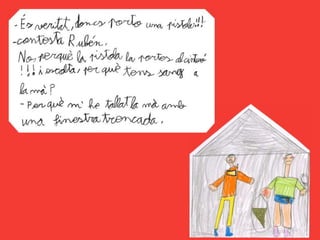 - És veritat, doncs porto una pistola!!!
- contesta Rubén.
No, perquè la pistola la portes al cinturó
!!! i escolta, per què tens sang a
la mà?
- Perquè m'he tallat la mà amb
una finestra trencada.